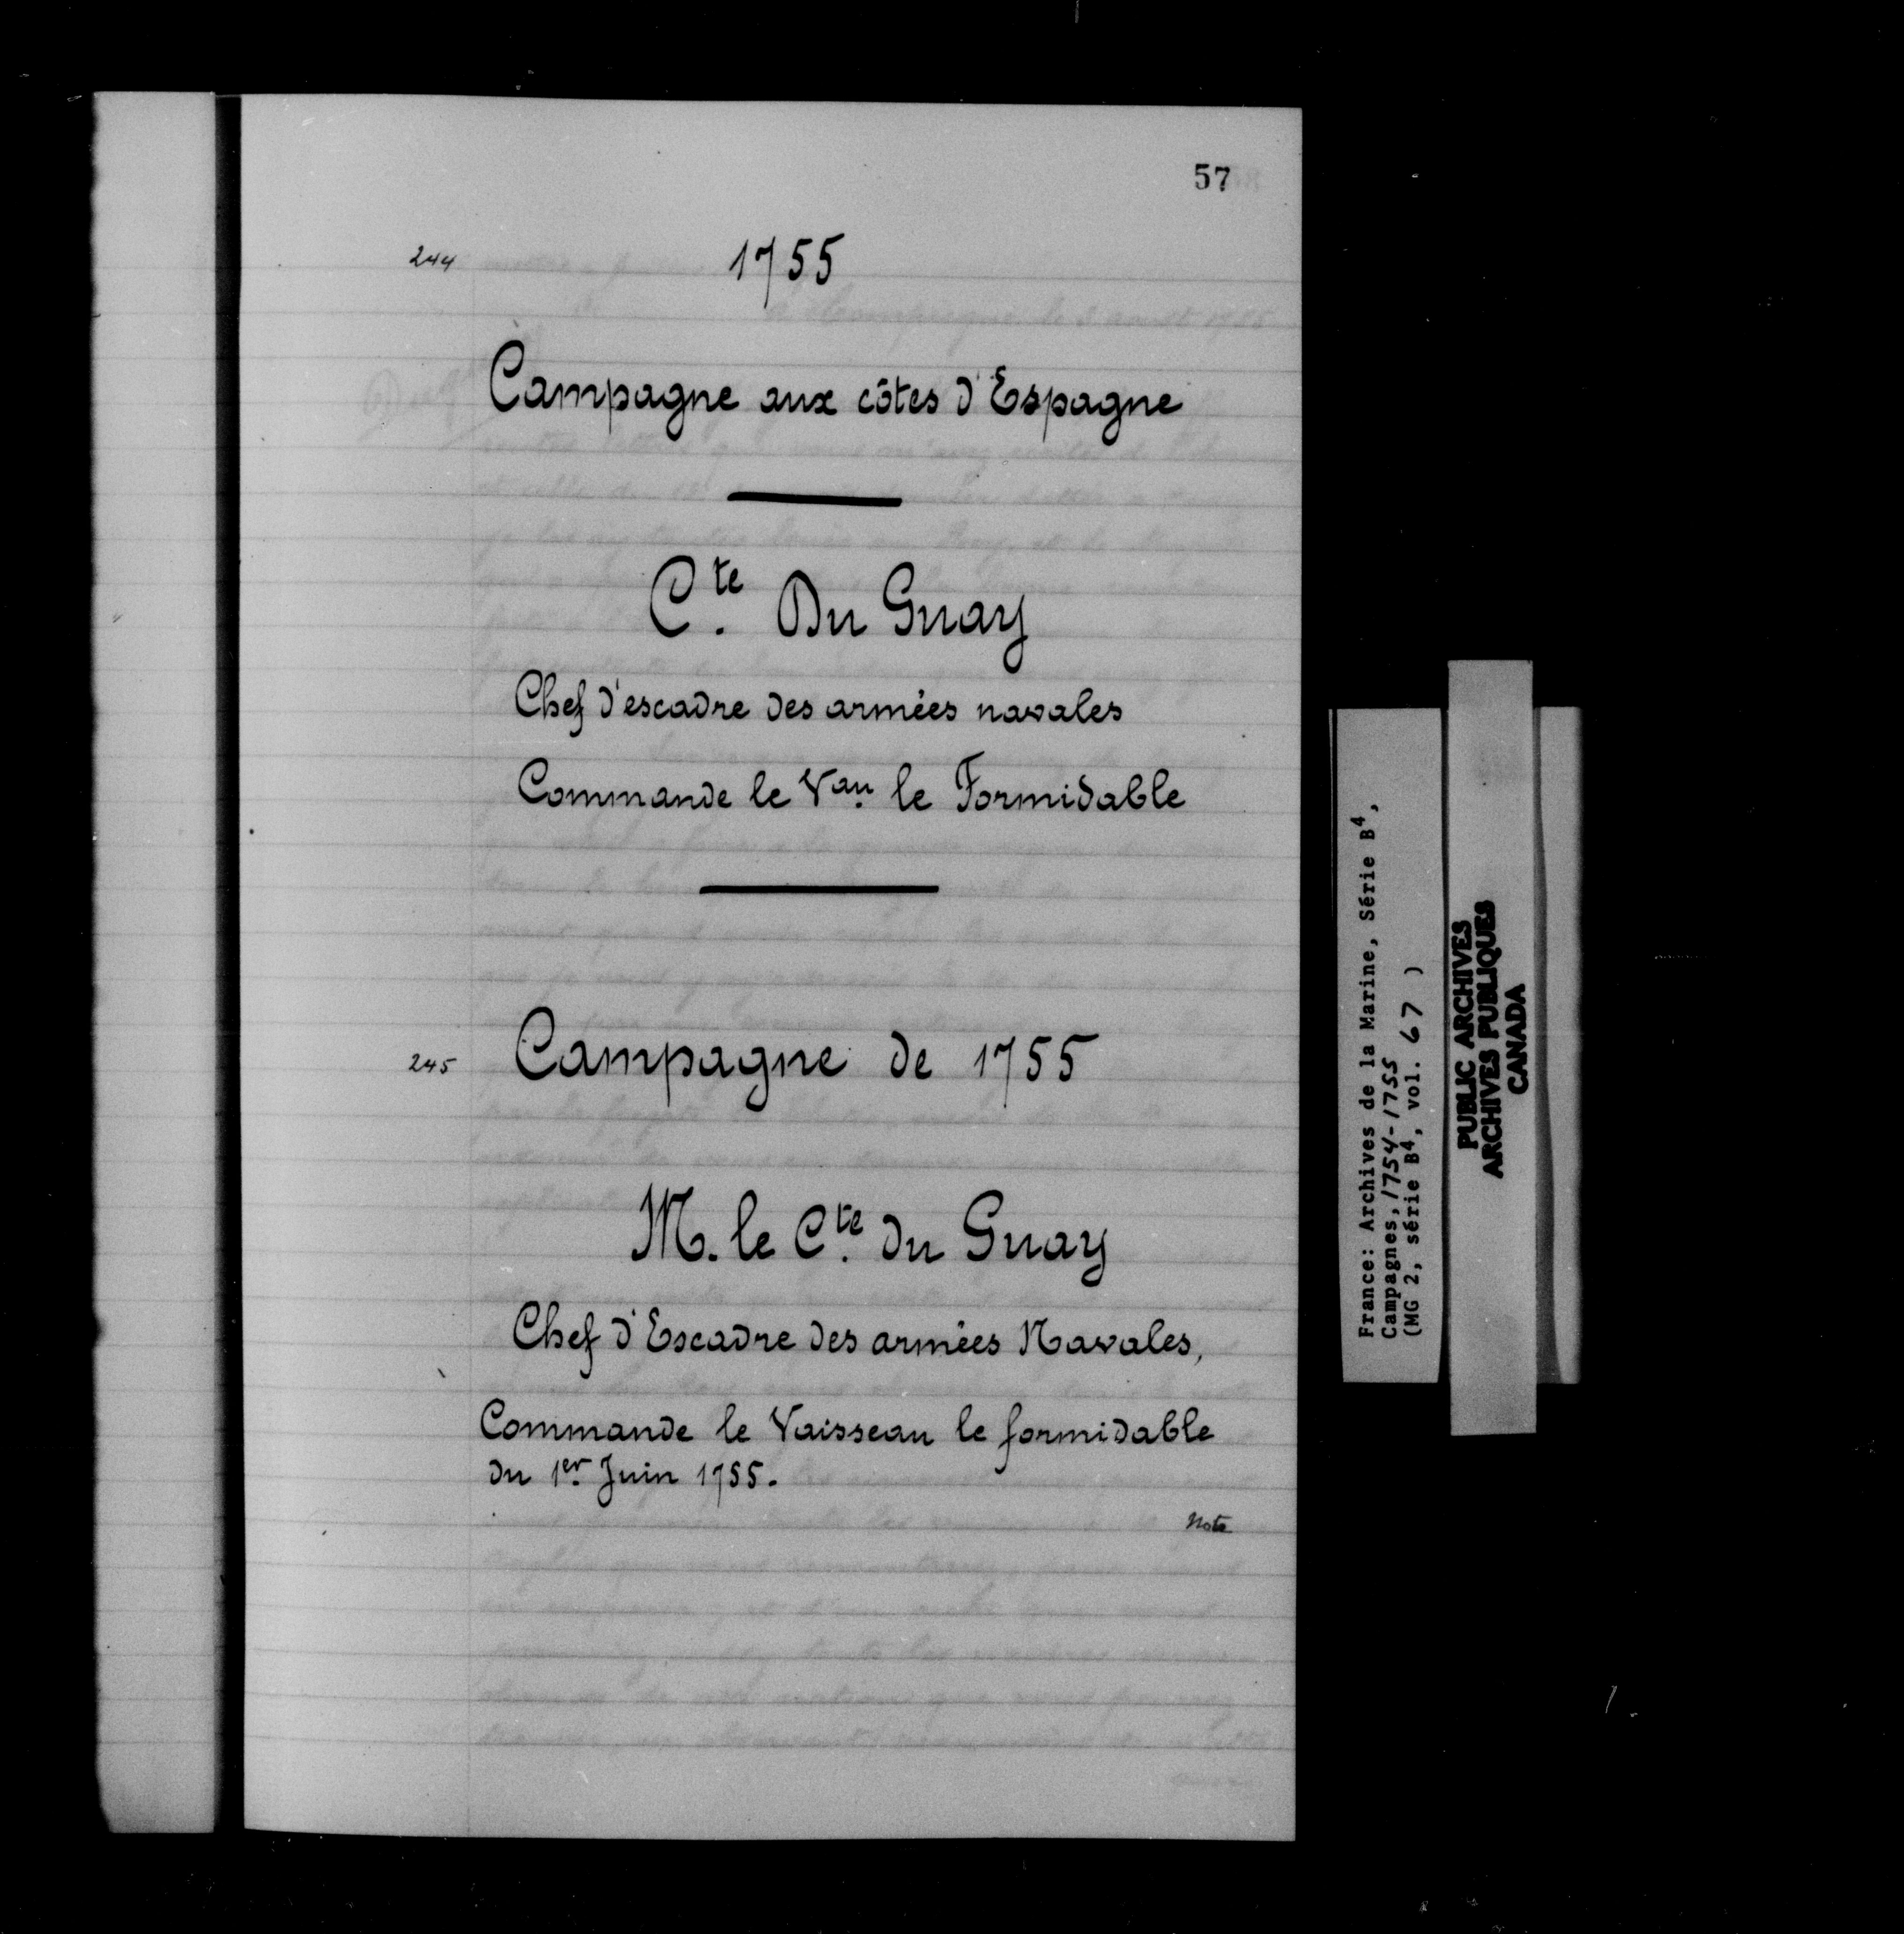 57
244
1755
Campagne aux côtes d'Espagne
Cte. Du Guay
Chef d'escadre des armées navales
Commande le Vau. le Formidable
245
Campagne de 1755
M. le Cte. du Guay
Chef d'Escadre des armées Navales,
Commande le Vaisseau le formidable
du 1er. Juin 1755.
Note
France: Archives de la Marine, Série B4,
Campagnes, 1754-1755
(MG 2, série B4, vol. 67 )
PUBLIC ARCHIVES
ARCHIVES PUBLIQUES
CANADA